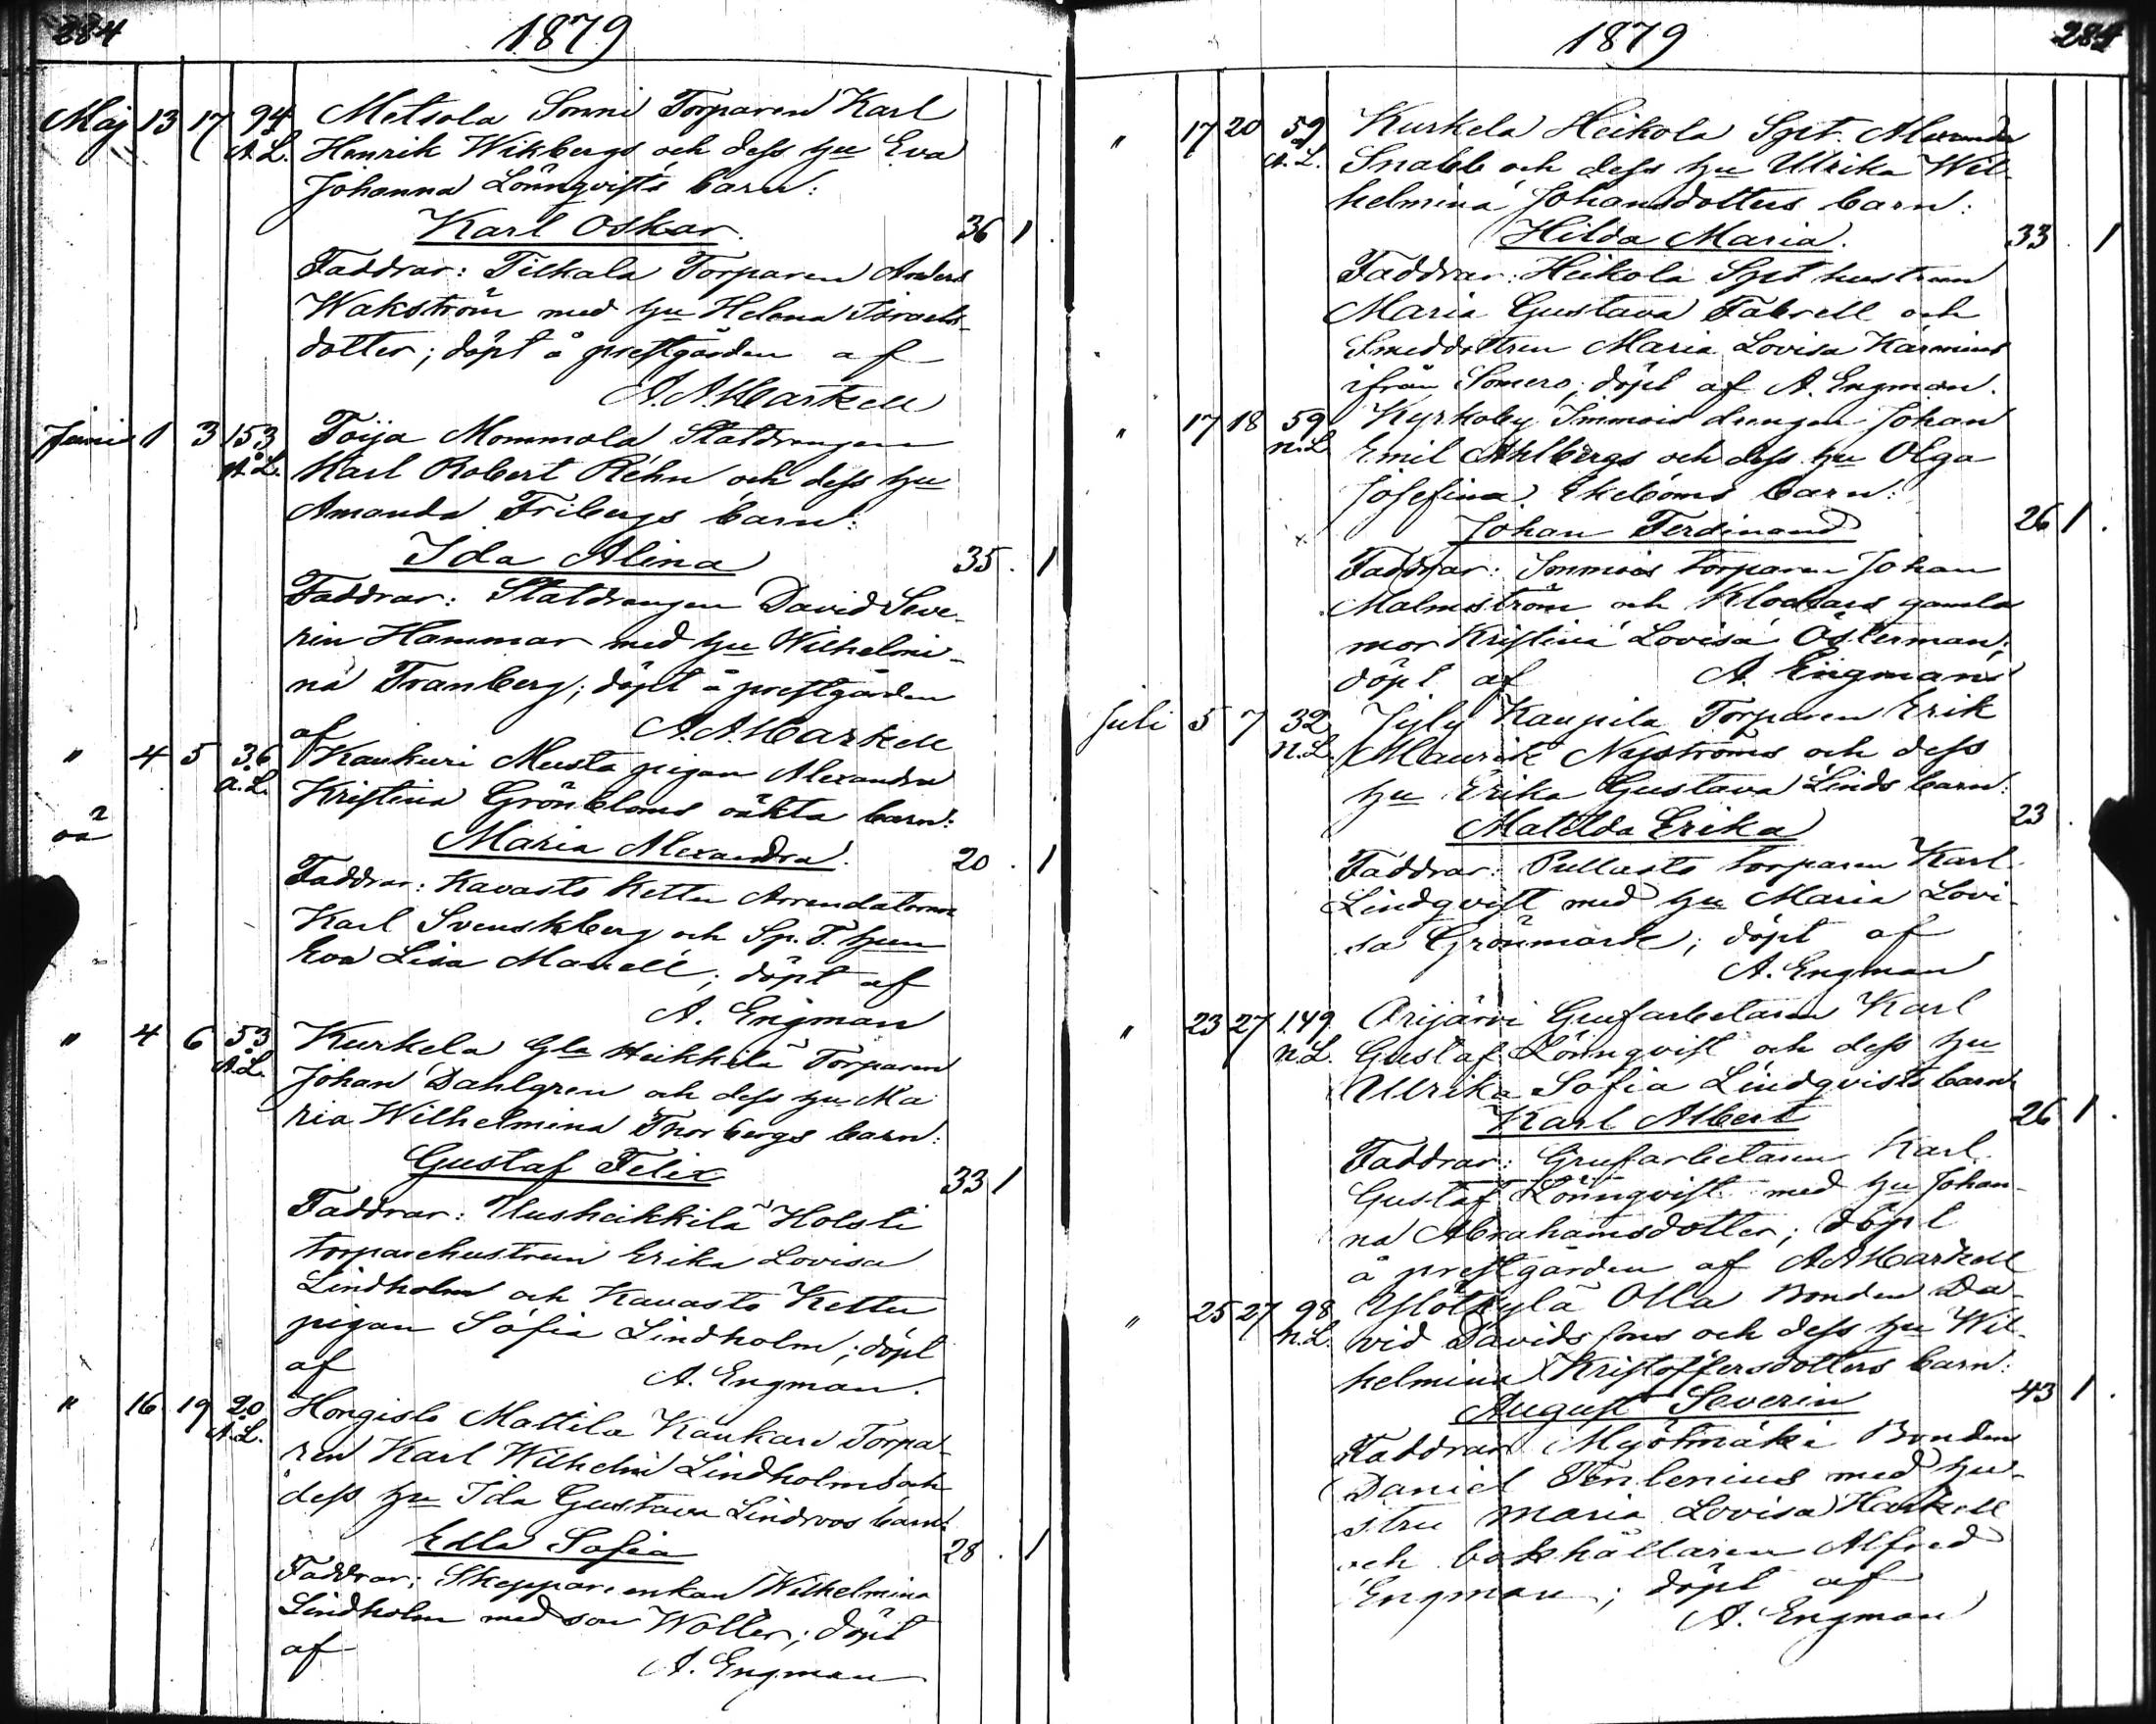 284
1879
Maj 13 17 94 Metsola Sonni Torparen Karl
A.L. Henrik Wikbergs och dess hu Eva
Johanna Lönnqvists barn:
Karl Oskar. 36 1
Faddrar: Tilkala Torparen Anders
Wakström med hu Helena Israels-
dotter; döpt å prestgården af
A. A. Markell
Juni 1 3 153 Toija Mommola Statdrengen
A.L. Karl Robert Rehn och dess hu
Amanda Fribergs barn:
Ida Alina 35. 1
Faddrar: Statdrengen David Seve-
rin Hammar med hu Wilhelmi-
na Tranberg; döpt å prestgården
af A. A. Markell
" 4 5 36 Kaukuri Musta pigan Alexandra
a.L. Kristina Grönbloms oäkta barn:
oä Maria Alexandra. 20. 1
Faddrar: Kavasto Kettu Arrendatorn
Karl Svenskberg och Sp. T. hun
Eva Lisa Mavell; döpt af
A. Engman
" 4 6 53 Kurkela Gla Heikkilä Torparen
A.L. Johan Dahlgren och dess hu Ma
ria Wilhelmina Thorbergs barn:
Gustaf Felix 33 1
Faddrar: Uusheikkilä Holsti
torparehustrun Erika Lovisa
Lindholm och Kavasto Kettu
pigan Sofia Lindholm; döpt
af A. Engman.
" 16 19 20 Hongisto Mattila Kaukari Torpa-
A.L. ren Karl Wilhelm Lindholms och
dess hu Ida Gustava Lindroos barn:
Edla Sofia 28. 1
Faddrar: Skeppar enkan Wilhelmina
Lindholm med son Wolter; döpt
af A. Engman
1879
284
" 17 20 59 Kurkela Heikola Spt. Alexander
A.L. Snabb och dess hu Ulrika Wil-
helmina Johansdotters barn:
Hilda Maria. 33. 1
Faddrar: Heikola Spt hustrun
Maria Gustava Tabell och
Smeddottren Maria Lovisa Karmins
ifrån Somero; döpt af A. Engman.
" 17 18 59 Kyrkoby Immois drengen Johan
n.L. Emil Ahlbergs och dess hu Olga
Josefina Ekeboms barn:
Johan Ferdinand 26 1.
Faddrar: Immois torparen Johan
Malmström och Klockars gamla
mor Kristina Lovisa Österman;
döpt af A. Engman
Juli 5 7 32 Jyly Kaupila Torparen Erik
n.L. Maurik Nyströms och dess
hu Erika Gustava Linds barn:
Matilda Erika 23.
Faddrar: Pullasto torparen Karl
Lindqvist med hu Maria Lovi-
sa Grönmark; döpt af
A. Engman
" 23 27 149 Orijärvi Grufarbetaren Karl
n.L. Gustaf Lönnqvist och dess hu
Ulrika Sofia Lindqvists barn
Karl Albert 26 1.
Faddrar: Grufarbetaren Karl
Gustaf Lönnqvist med hu Johan-
na Abrahamsdotter; döpt
å prestgården af A A Markell
" 25 27 98 Ylötkylä Olla Bonden Da-
n.L. vid Davids sons och dess hu Wil-
helmina Kristoffersdotters barn:
August Severin 43 1.
Faddrar Myötmäki Bonden
Daniel Tenlenius med hu-
stru Maria Lovisa Markell
och bokhållaren Alfred
Engman; döpt af
A. Engman